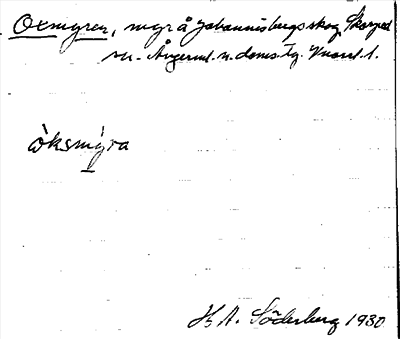 Oxmyren, myr å Johannisbergs skog, Skorped
sn. Ångerml. n. doms. tg.
òksmýra
H. A. Söderberg 1930